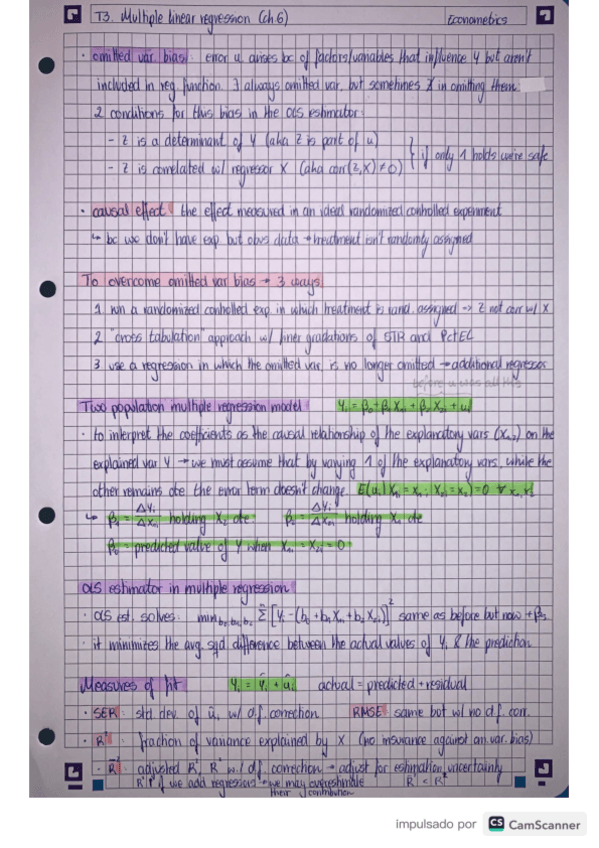 T3. Multiple linear regression (ch 6)
Econometrics
· omitted var. bias: error u arises bc of factors/variables that influence Y but aren't
included in reg. function. ∃ always omitted var. but sometimes in omitting them.
2 conditions for this bias in the OLS estimator:
- Z is a determinant of Y (aka Z is part of u)
- Z is correlated w/ regressor X (aka corr(Z,X) ≠ 0)
} if only 1 holds we're safe
· causal effect: the effect measured in an ideal randomized controlled experiment
↳ bc we don't have exp. but obvs data → treatment isn't randomly assigned
To overcome omitted var bias → 3 ways
1. run a randomized controlled exp. in which treatment is rand. assigned → Z not corr w/ X
2. "cross tabulation" approach w/ finer gradations of STR and PctEL
3. use a regression in which the omitted var. is no longer omitted → additional regressor
Two population multiple regression model: Yi = β0 + β1 X1i + β2 X2i + ui
· to interpret the coefficients as the causal relationship of the explanatory vars (X1,2) on the
explained var Y → we must assume that by varying 1 of the explanatory vars, while the
other remains cte the error term doesn't change. E(ui | X1i = x1, X2i = x2) = 0 ∀ x1, x2
↳ β1 = ΔYi / ΔX1i holding X2 cte β2 = ΔYi / ΔX2i holding X1 cte
β0 = predicted value of Y when X1i = X2i = 0
OLS estimator in multiple regression
· OLS est. solves: min b0,b1,b2 Σ [Yi - (b0 + b1 X1i + b2 X2i)]² same as before but now + β2
· it minimizes the avg. sqd difference between the actual values of Yi & the prediction
Measures of fit Yi = Ŷi + ûi actual = predicted + residual
· SER: std dev. of ûi w/ d.f. correction RMSE: same but w/ no d.f. corr.
· R²: fraction of variance explained by X (no insurance against om. var. bias)
· R̄²: adjusted R², R² w/ d.f. correction → adjust for estimation uncertainty
R² ↑ if we add regressors → we may overestimate R̄² < R²
their contribution
impulsado por CS CamScanner